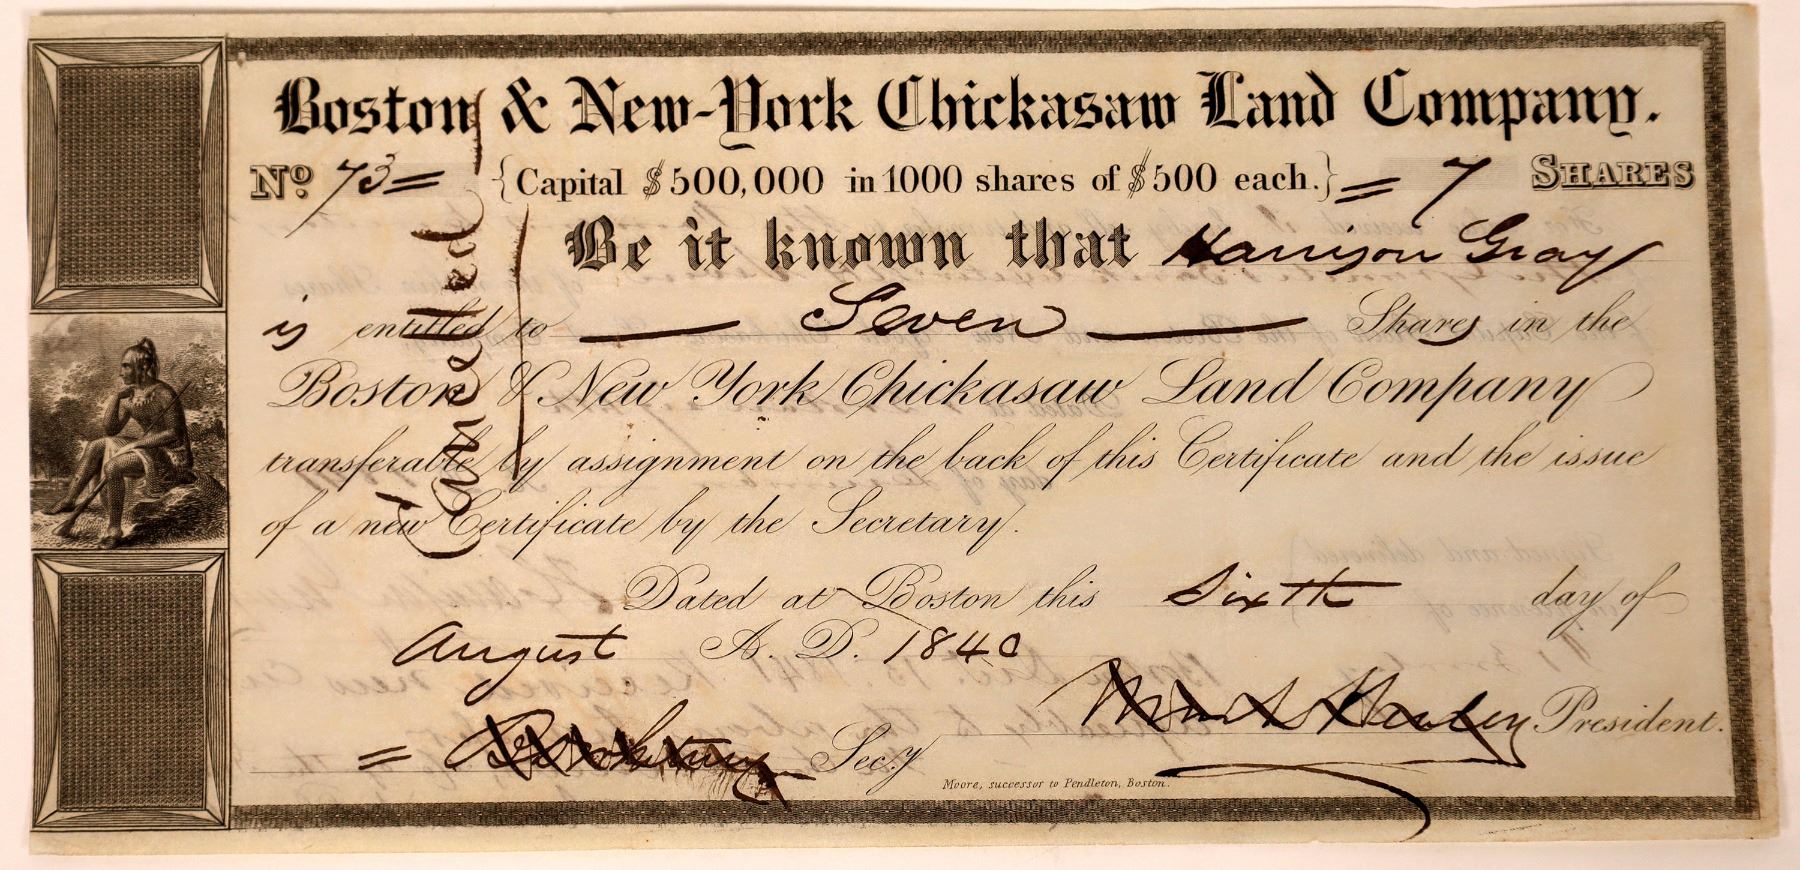 Boston & New-York Chickasaw Land Company.
No. 73 = {Capital $500,000 in 1000 shares of $500 each.} = 7 SHARES
Be it known that Harrison Gray
is entitled to — Seven — Shares in the
Boston & New York Chickasaw Land Company
transferable by assignment on the back of this Certificate and the issue
of a new Certificate by the Secretary.
Dated at Boston this Sixth day of
August A. D. 1840
= Sec.y President.
Moore, successor to Pendleton, Boston.
Cancelled